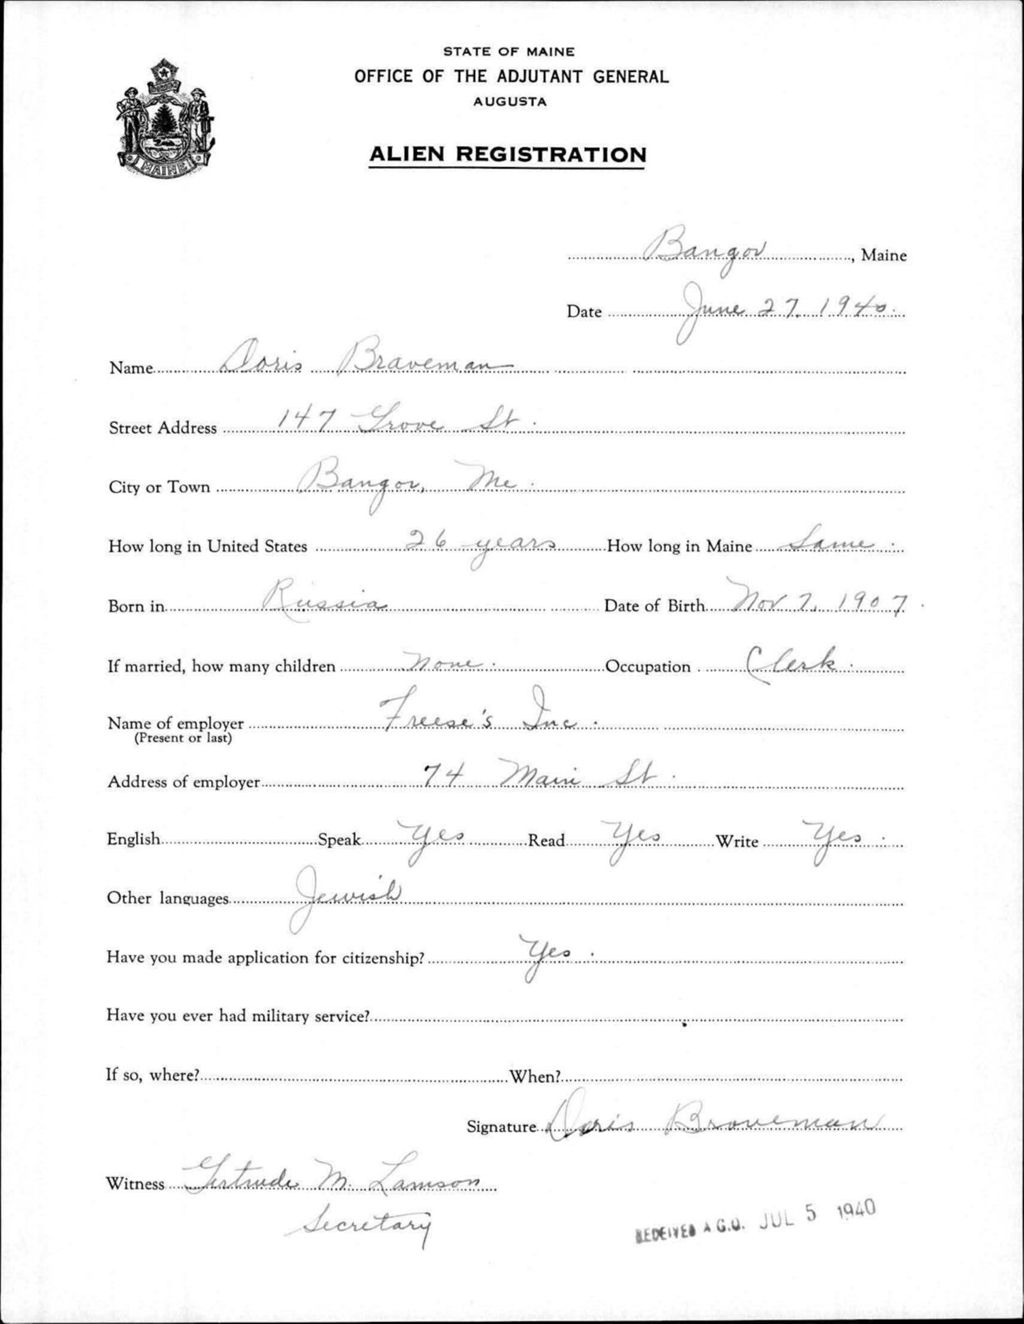 STATE OF MAINE
OFFICE OF THE ADJUTANT GENERAL
AUGUSTA
ALIEN REGISTRATION
MAINE
Bangor, Maine
Date June 27, 1940
Name Doris Braveman
Street Address 147 Grove St.
City or Town Bangor, Me.
How long in United States 26 years How long in Maine Same
Born in Russia Date of Birth Nov 7, 1907
If married, how many children None. Occupation Clerk.
Name of employer Freese's Inc.
(Present or last)
Address of employer 74 Main St.
English Speak Yes Read Yes Write Yes
Other languages Jewish
Have you made application for citizenship? Yes.
Have you ever had military service?
If so, where? When?
Signature Doris Braveman
Witness Gertrude M. Lamson
Secretary
RECEIVED A.G.O. JUL 5 1940